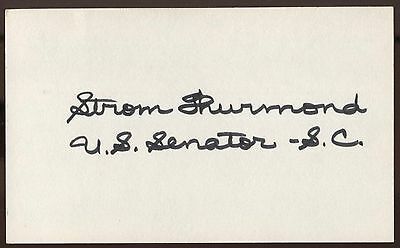 Strom Thurmond
U.S. Senator - S.C.